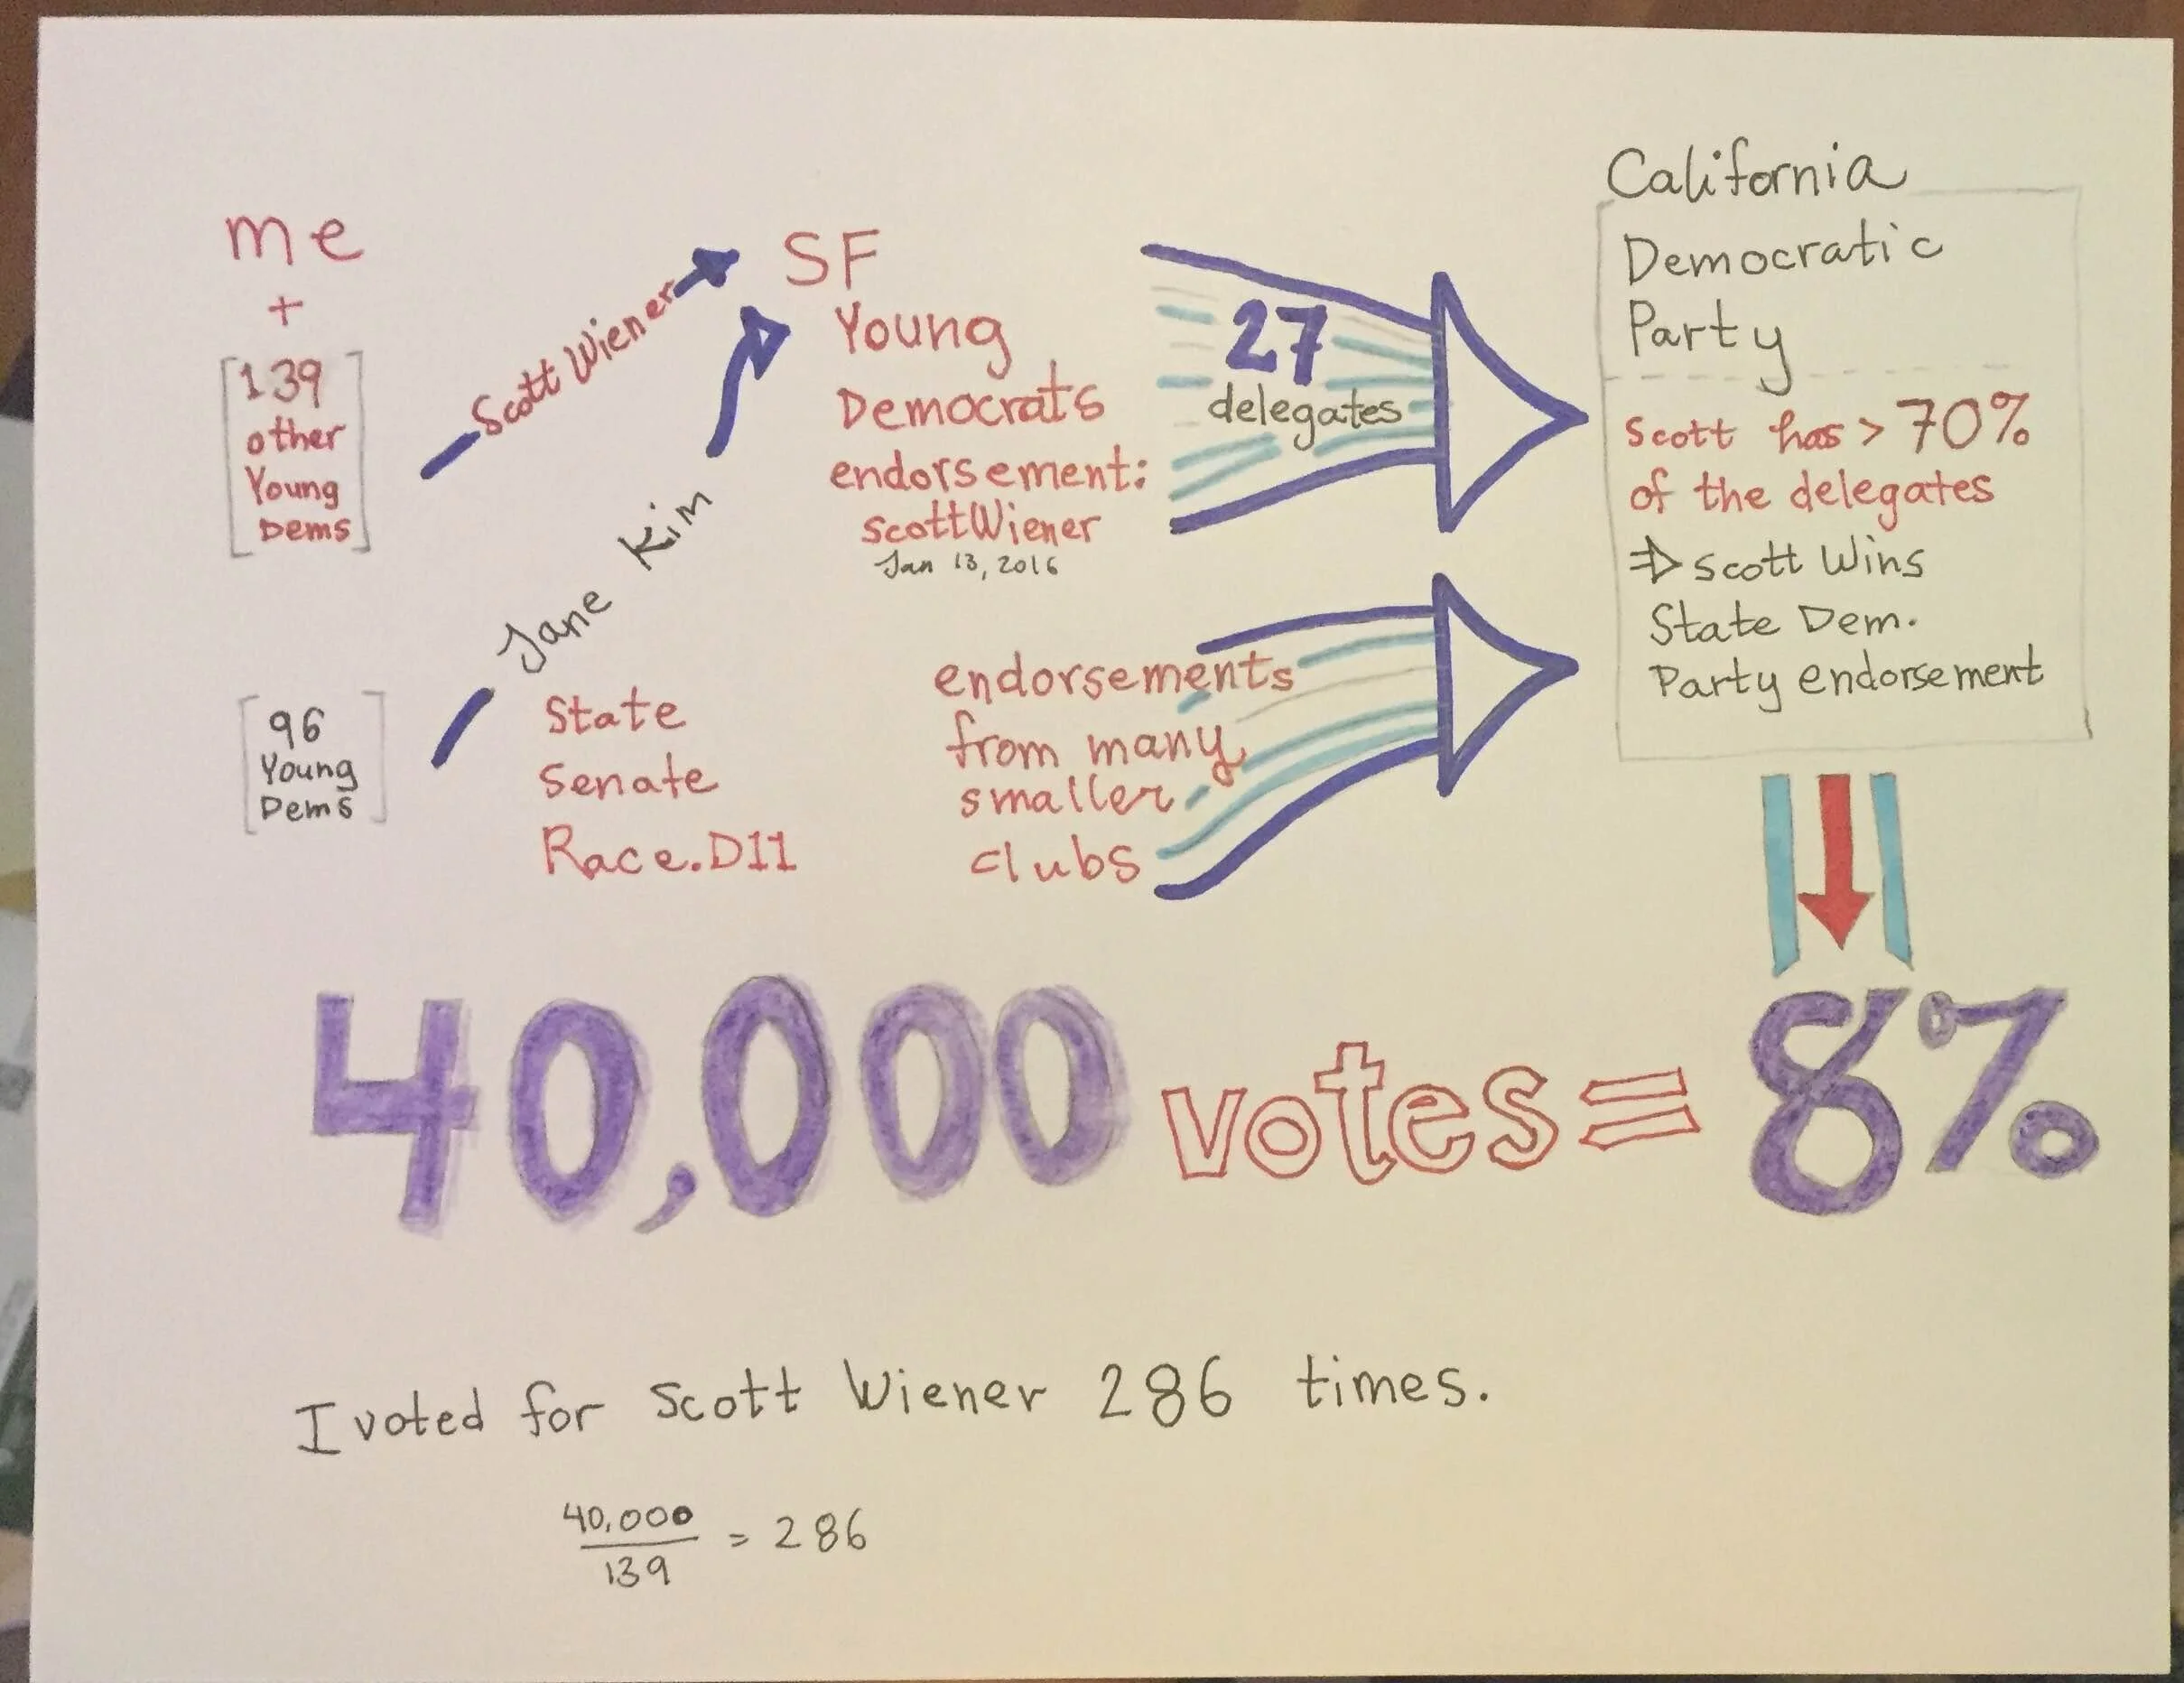 me
+
139
other
Young
Dems
Scott Wiener
96
Young
Dems
Jane Kim
State
Senate
Race.D11
SF
Young
Democrats
endorsement:
Scott Wiener
Jan 13, 2016
27
delegates
endorsements
from many
smaller
clubs
California
Democratic
Party
Scott has > 70%
of the delegates
⇒ Scott Wins
State Dem.
Party endorsement
40,000 votes = 8%
I voted for Scott Wiener 286 times.
40,000
139
= 286